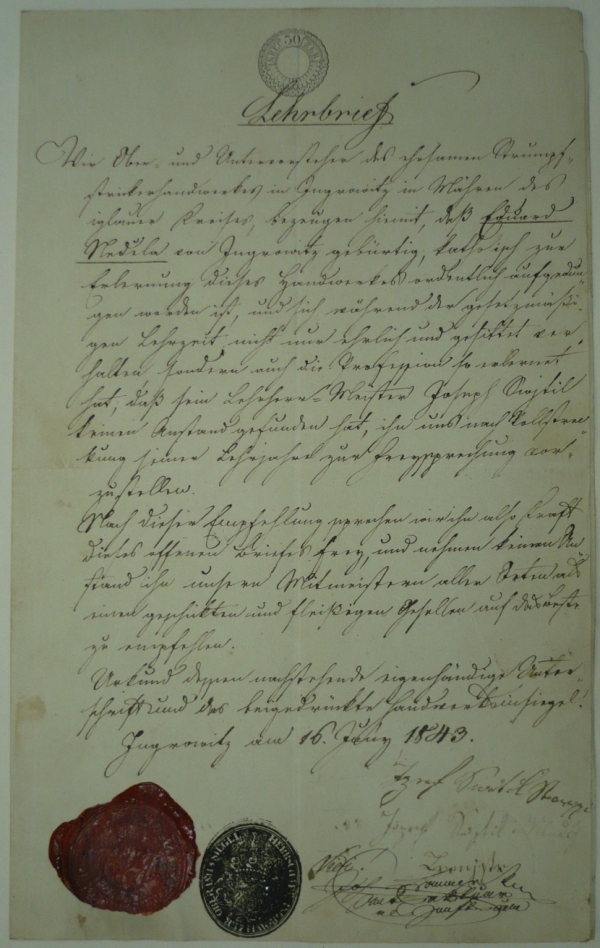 30
Lehrbrief
Wir Ober- und Untervorsteher des ehrsamen Strumpf-
strickerhandwerkes in Ingrowitz in Mähren des
iglauer Kreises, bezeugen hiemit, daß Eduard
Neděla von Ingrowitz gebürtig, katholisch zur
Erlernung dieses Handwerkes ordentlich aufgedun-
gen worden ist, und sich während der gesetzmäßi-
gen Lehrzeit nicht nur ehrlich und gesittet ver-
halten sondern auch die Profession so erlernet
hat, daß sein Lehrherr Meister Joseph
keinen Anstand gefunden hat, ihn uns nach Vollstre-
kung seiner Lehrjahre zur Freysprechung vor-
zustellen.
Nach dieser Empfehlung sprechen wir ihn also kraft
dieses offenen Briefes frey, und nehmen keinen An-
stand ihn unsern Mitmeistern aller Orten als
einen geschikten und fleißigen Gesellen auf das beste
zu empfehlen.
Urkund dessen nachstehende eigenhändige Unter-
schrift und das beigedrückte Handwerksinsiegel!
Ingrowitz am 16. Juny 1843.
Jozef
Jozef